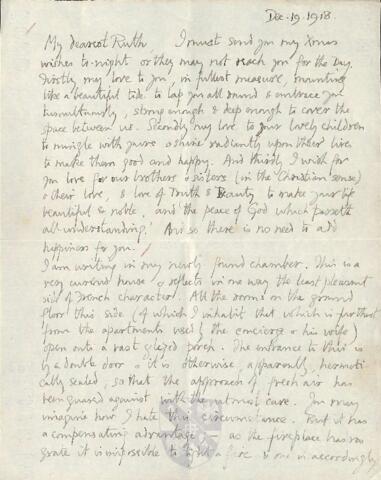 Dec. 19. 1918.
My dearest Ruth I must send you my Xmas
wishes to-night or they may not reach you for the day.
Firstly my love to you, in fullest measure, mounting
like a beautiful tide to lap you all round & embrace you
tumultuously, strong enough & deep enough to cover the
space between us. Secondly my love to your lovely children
to mingle with yours & shine radiantly upon their lives
to make them good and happy. And thirdly I wish for
you love for our brothers & sisters (in the Christian sense)
& their love, & love of Truth & Beauty to make your life
beautiful & noble, and the peace of God which passeth
all understanding. And so there is no need to add
happiness for you.
I am writing in my newly found chamber. This is a
very curious house & reflects in one way the least pleasant
side of French character. All the rooms on the ground
floor this side (of which I inhabit that which is furthest
from the apartments used by the concierge & his wife)
open onto a vast glazed porch. The entrance to this is
by a double door & it is otherwise, apparently, hermeti-
cally sealed, so that the approach of fresh air has
been guarded against with the utmost care. You may
imagine how I hate this circumstance. But it has
a compensating advantage as the fireplace has no
grate it is impossible to light a fire & one is accordingly